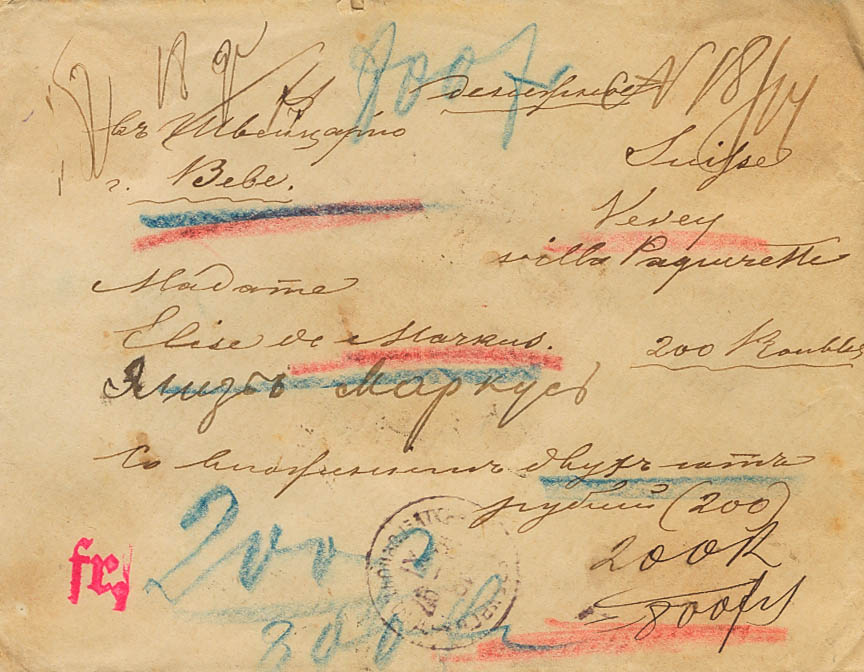 800 fr
денежное № 18/14
въ Швейцарію
г. Веве.
Suisse
Vevey
villa Paquerette
Madame
Elise de Markus.
200 Roubles
Элизъ Маркусъ
Со вложеніемъ двухъ сотъ
рублей (200)
200
200R
fr.
800 frs